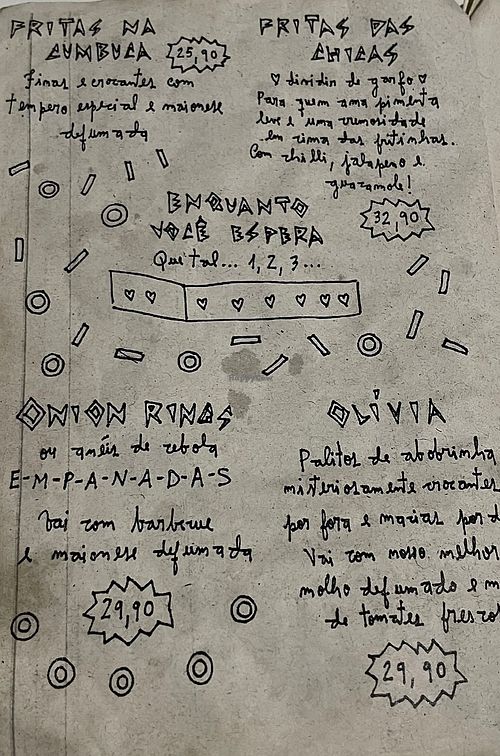 FRITAS NA
CUMBUCA 25,90
Finas e crocantes com
tempero especial e maionese
defumada
FRITAS DAS
CHICAS
♡ dividir de garfo ♡
Para quem ama pimenta
leve e uma cremosidade
em cima das fritinhas.
Com chilli, jalapeno e
guacamole!
32,90
ENQUANTO
VOCÊ ESPERA
Que tal... 1, 2, 3...
ONION RINGS
ou anéis de cebola
E-M-P-A-N-A-D-A-S
Vai com barbecue
e maionese defumada
29,90
OLÍVIA
Palitos de abobrinha
misteriosamente crocantes
por fora e macias por d
Vai com nosso melhor
molho defumado e m
de tomates fresco
29,90